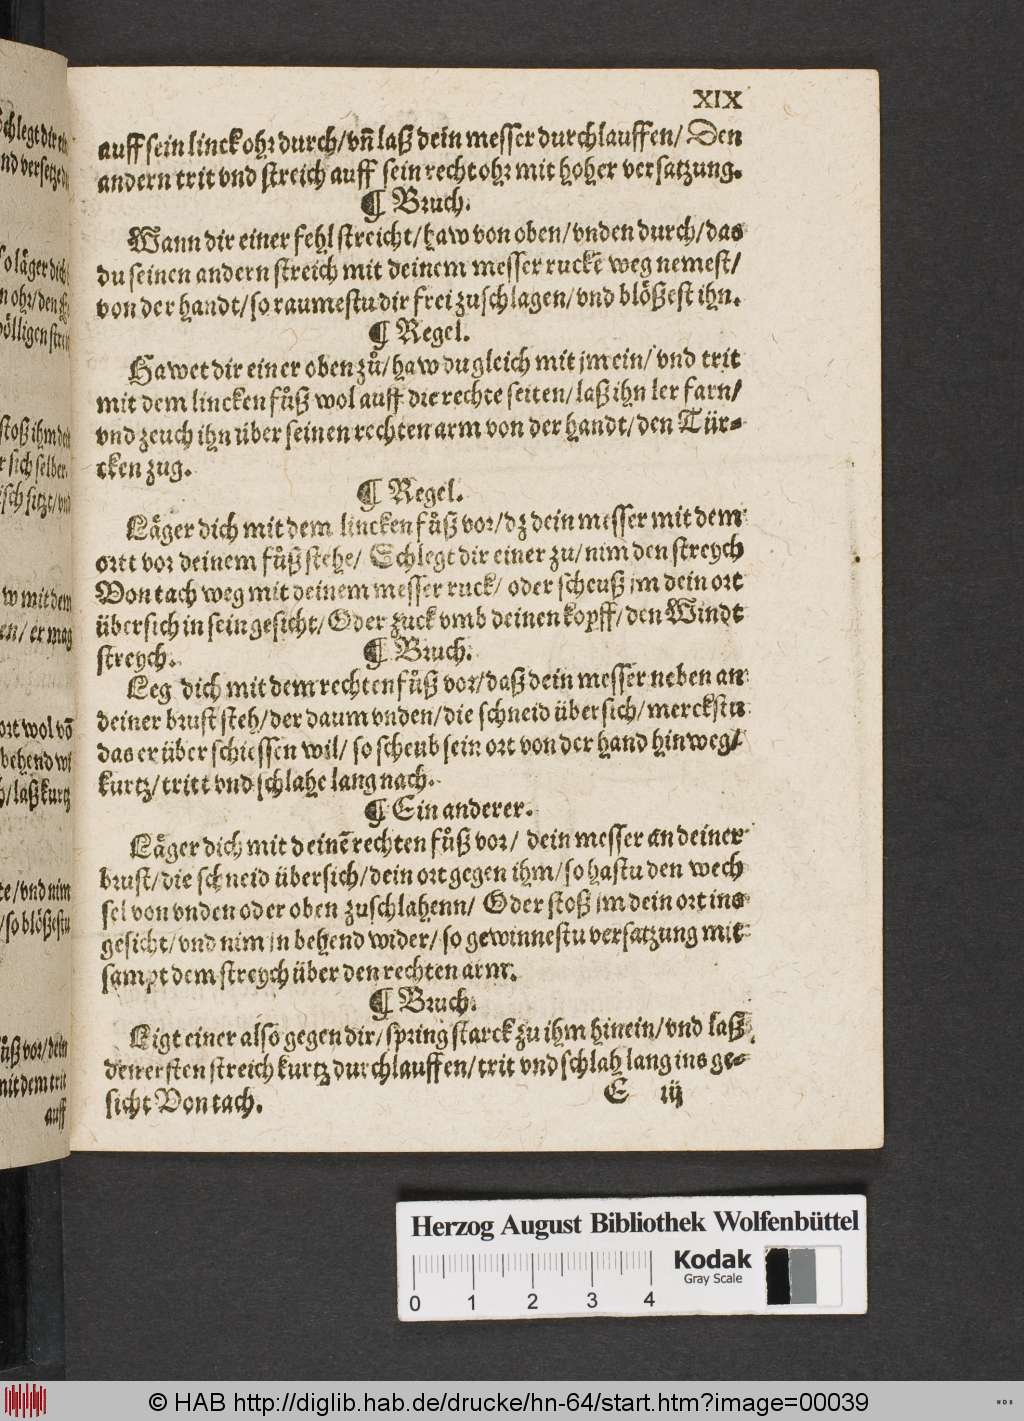 XIX
auff sein linck ohr durch/ vñ laß dein messer durchlauffen/ Den
andern trit vnd streich auff sein recht ohr mit hoher versatzung.
¶ Bruch.
Wann dir einer fehl streicht/ haw von oben/ vnden durch/ das
du seinen andern streich mit deinem messer ruckẽ weg nemest/
von der handt/ so raumestu dir frei zuschlagen/ vnd blößest ihn.
¶ Regel.
Hawet dir einer oben zů/ haw du gleich mit jm ein/ vnd trit
mit dem lincken fůß wol auff die rechte seiten/ laß ihn ler farn/
vnd zeuch ihn über seinen rechten arm von der handt/ den Tür-
cken zug.
¶ Regel.
Läger dich mit dem lincken fůß vor/ dz dein messer mit dem
ortt vor deinem fůß stehe/ Schlegt dir einer zu/ nim den streych
Von tach weg mit deinem messer ruck/ oder scheuß jm dein ort
übersich in sein gesicht/ Oder zuck vmb deinen kopff/ den Windt
streych.
¶ Bruch.
Leg dich mit dem rechten fůß vor/ daß dein messer neben an
deiner brust steh/ der daum vnden/ die schneid übersich/ merckstu
das er über schiessen wil/ so scheub sein ort von der hand hinweg/
kurtz/ tritt vnd schlahe lang nach.
¶ Ein anderer.
Läger dich mit deinẽ rechten fůß vor/ dein messer an deiner
brust/ die schneid übersich/ dein ort gegen ihm/ so hastu den wech
sel von vnden oder oben zuschlahenn/ Oder stoß jm dein ort ins
gesicht/ vnd nim jn behend wider/ so gewinnestu versatzung mit
sampt dem streych über den rechten arm.
¶ Bruch.
Ligt einer also gegen dir/ spring starck zu ihm hinein/ vnd laß
den ersten streich kurtz durchlauffen/ trit vnd schlah lang ins ge-
sicht Von tach.
E iij
Herzog August Bibliothek Wolfenbüttel
Kodak
Gray Scale
0 1 2 3 4
© HAB http://diglib.hab.de/drucke/hn-64/start.htm?image=00039